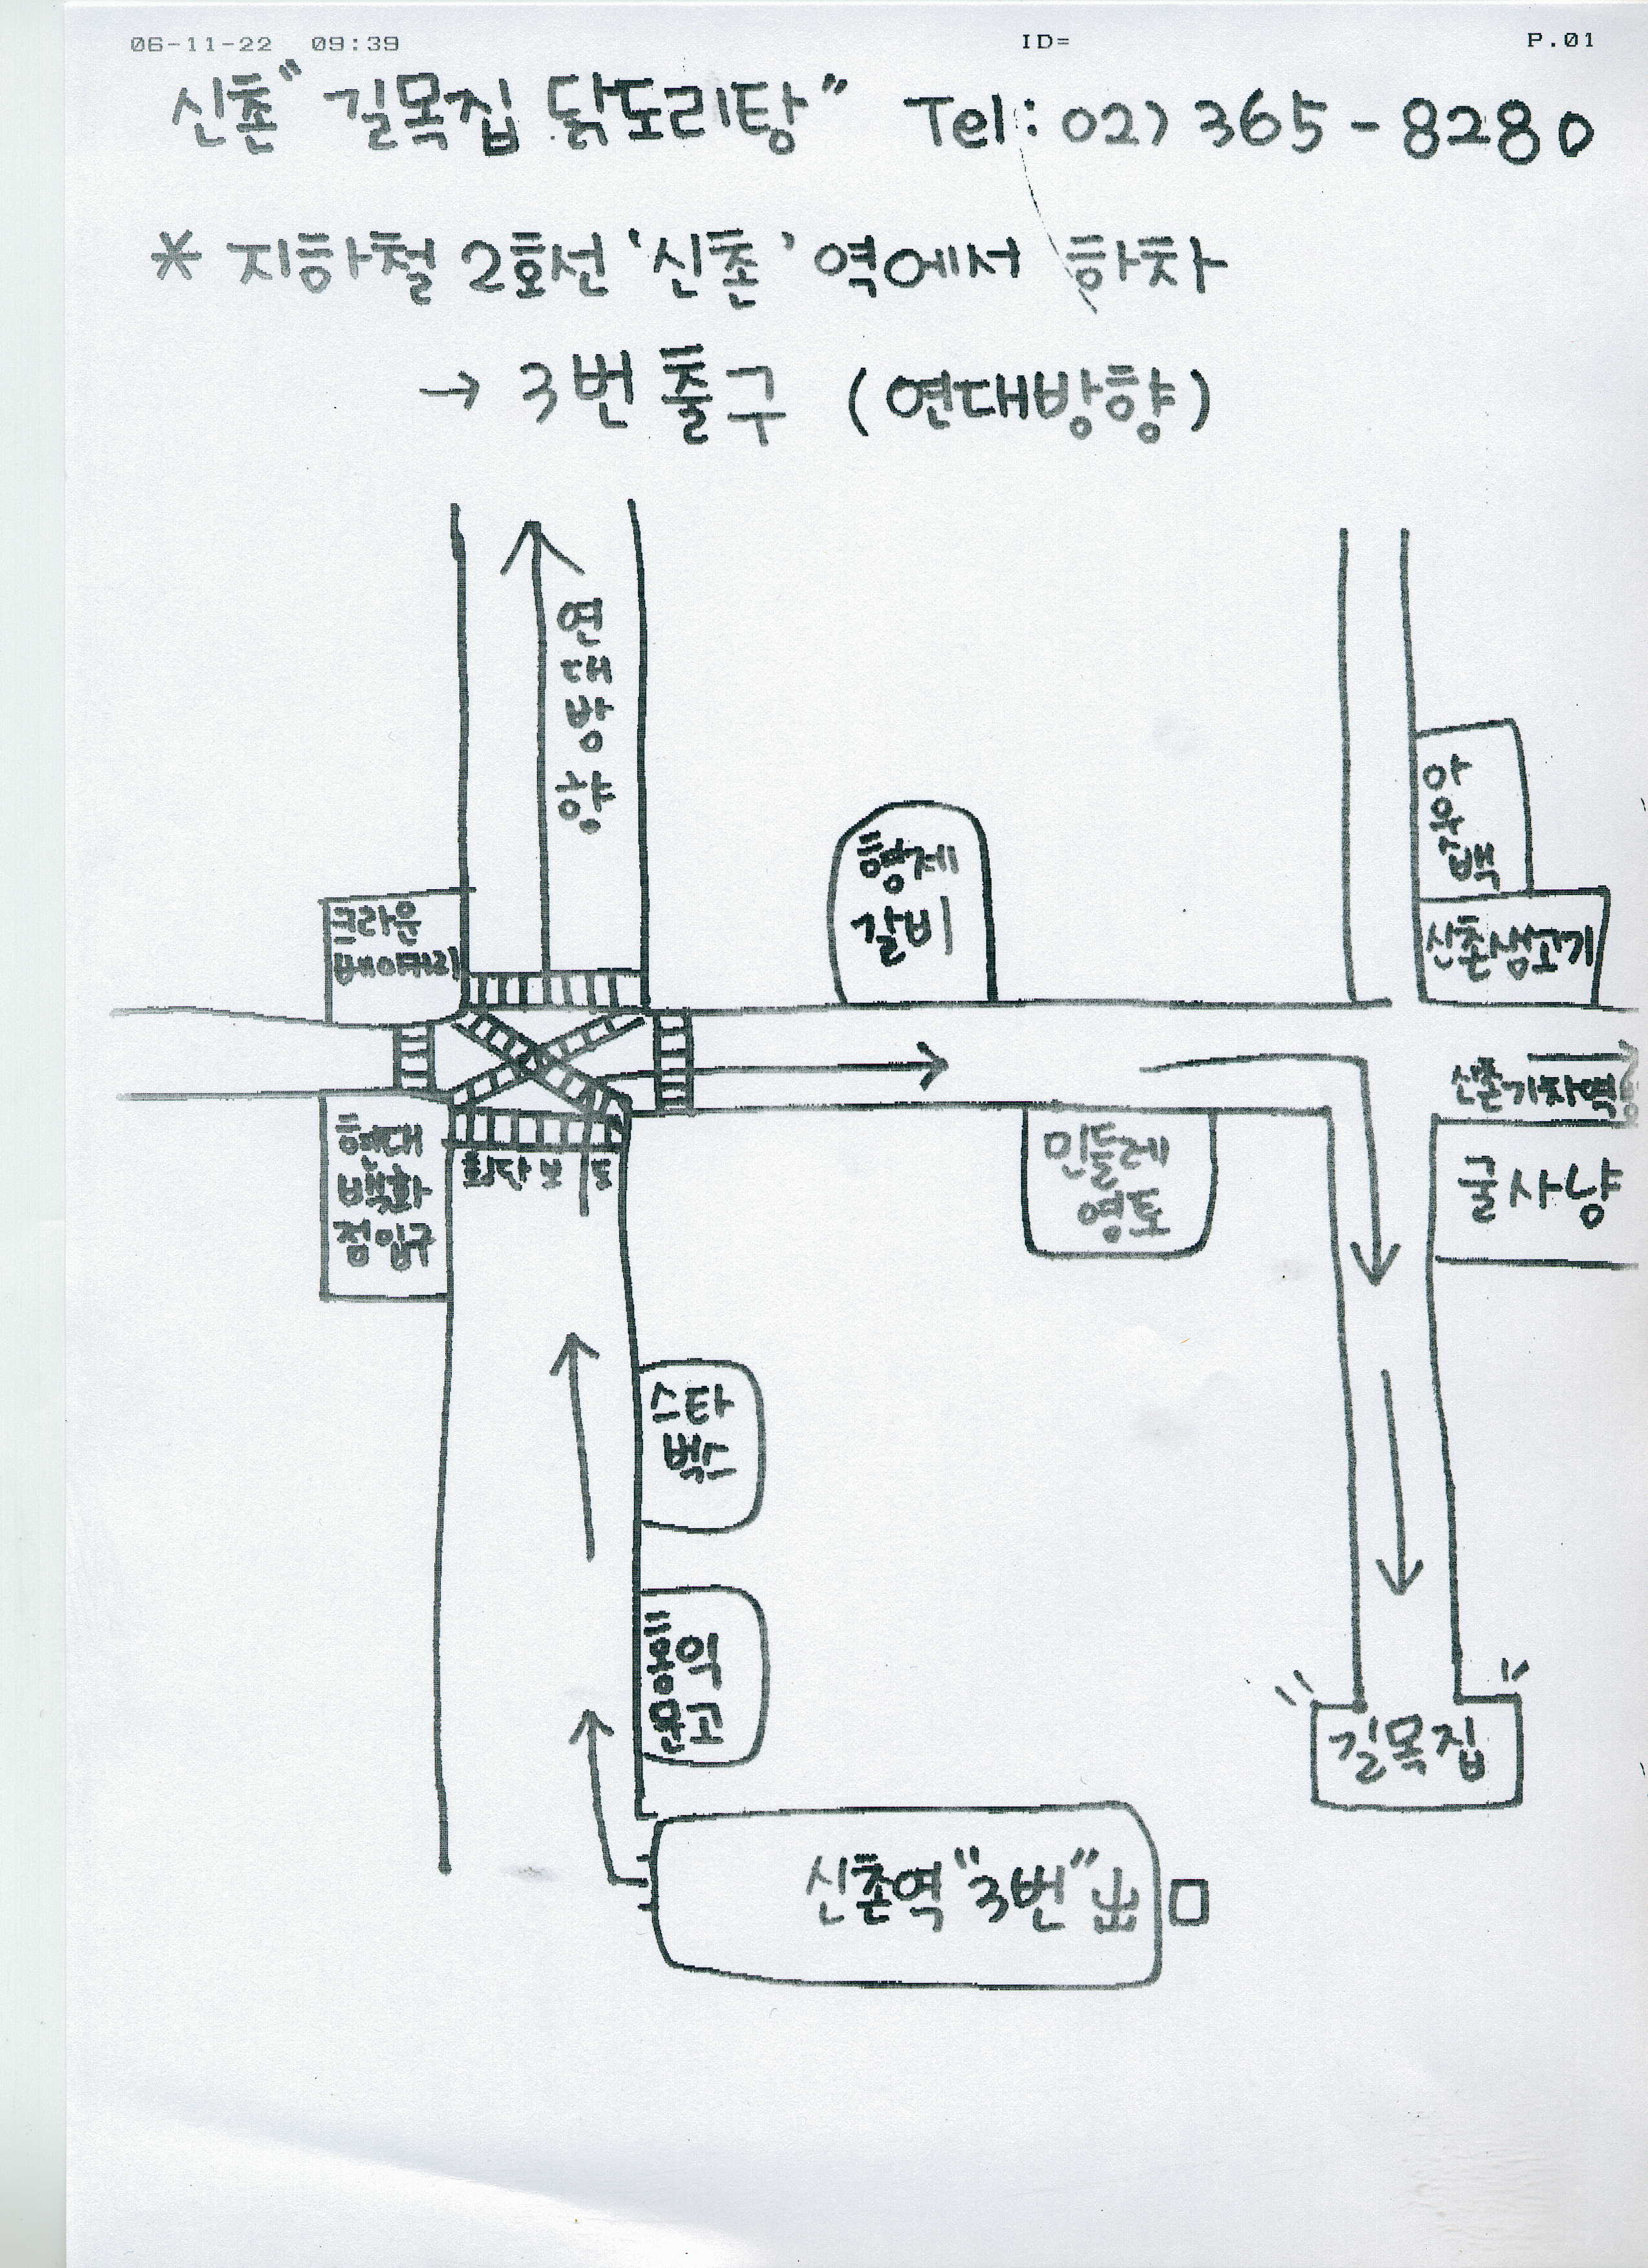 06-11-22 09:39 ID= P.01
신촌 "길목집 닭도리탕" Tel: 02) 365-8280
* 지하철 2호선 '신촌' 역에서 하차
→ 3번 출구 (연대방향)
연대방향
아웃백
형제
갈비
크라운
베이커리
신촌생고기
신촌기차역
현대
백화
점입구
횡단보도
민들레
영토
굴사냥
스타
벅스
홍익
문고
길목집
신촌역 "3번" 出 口